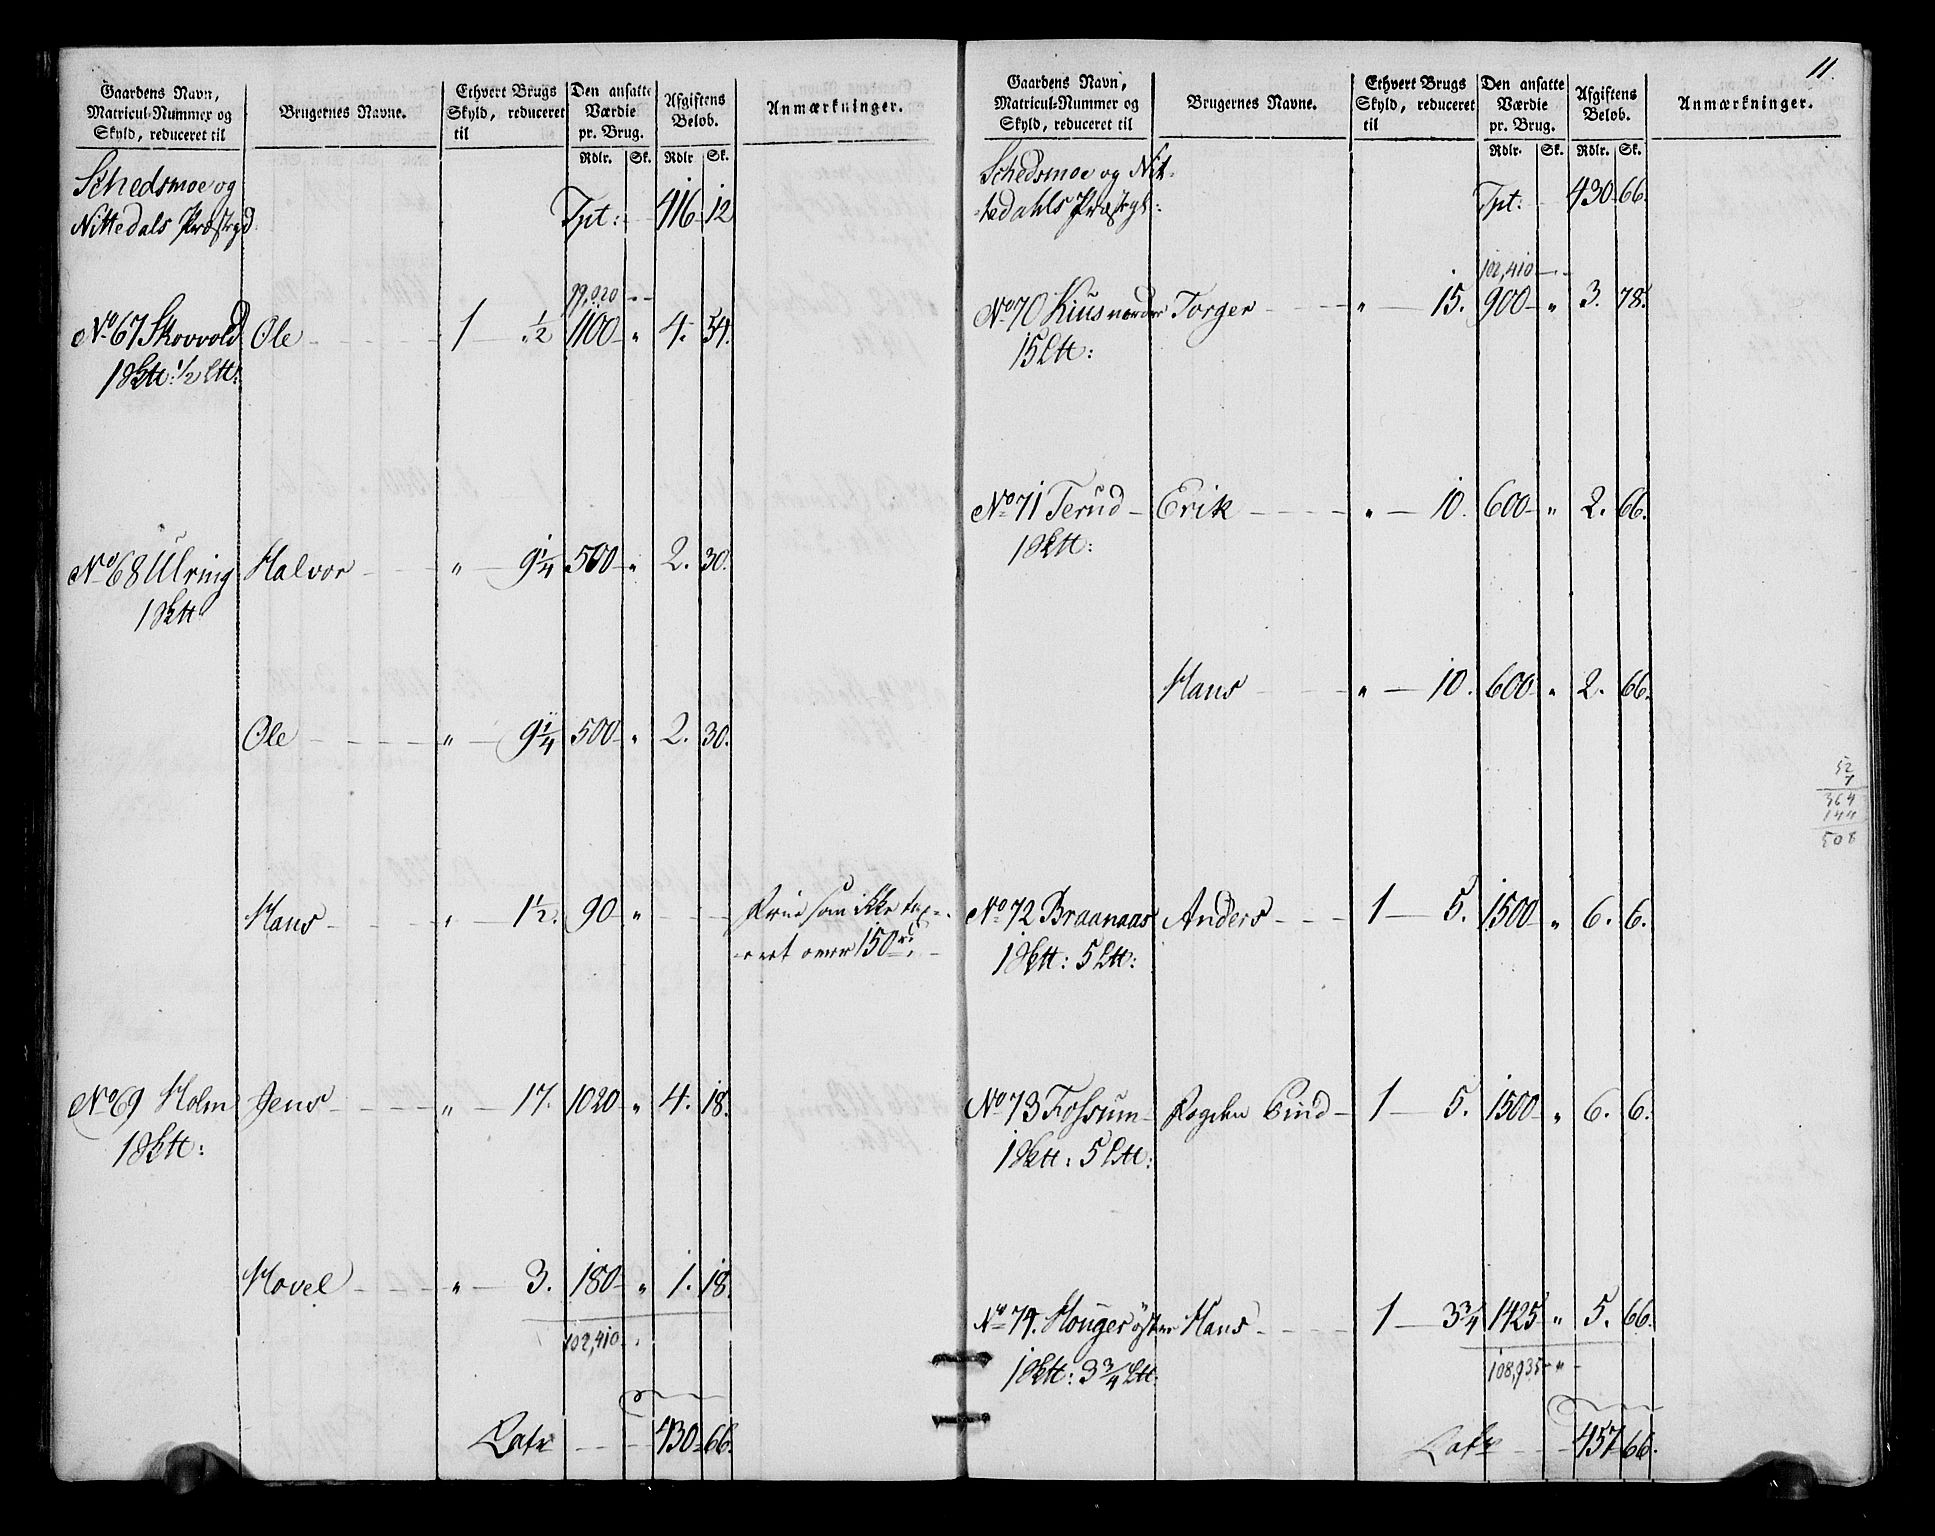 Gaardens Navn, Matricul-Nummer og Skyld, reduceret til | Brugernes Navne. | Ethvert Brugs Skyld, reduceret til | Den ansatte Værdie pr. Brug. Rdlr. Sk. | Afgiftens Beløb. Rdlr Sk. | Anmærkninger.
Schedsmoe og
Nittedals Præstegd Tpt: 416 12
99,020
No 67 Skovvold Ole 1 ½ 1100 " 4. 54.
1 Sktt: ½ Ltt:
No 68 Ulring Halvor " 9¼ 500 " 2. 30.
1 Sktt
Ole " 9¼ 500 " 2. 30.
Hans " 1½. 90 " som ikke tax-
eret over 150 rd.
No 69 Holm Jens " 17. 1020 " 4. 18.
1 Sktt:
Hovel " 3. 180 " 1. 18.
102,410
Latr 430 66.
11.
Gaardens Navn, Matricul-Nummer og Skyld, reduceret til | Brugernes Navne. | Ethvert Brugs Skyld, reduceret til | Den ansatte Værdie pr. Brug. Rdlr. Sk. | Afgiftens Beløb. Rdlr. Sk. | Anmærkninger.
Schedsmoe og Nit-
tedahls Præstegl: Tpt: 430 66.
102,410
No 70 Kius nordre Torger " 15. 900 " 3. 78.
15 Ltt:
No 71 Terud Erik " 10. 600 " 2. 66.
1 Sktt:
Hans " 10. 600 " 2. 66.
52
7
364
144
508
No 72 Braanaas Anders 1 5. 1500 " 6. 6.
1 Sktt: 5 Ltt:
No 73 Fossum 1 5. 1500 " 6. 6.
1 Sktt: 5 Ltt:
No 74. Houger öster Hans 1 3¾ 1425 " 5. 66.
1 Sktt: 3¾ Ltt:
108,935 "
Latr 457 66.